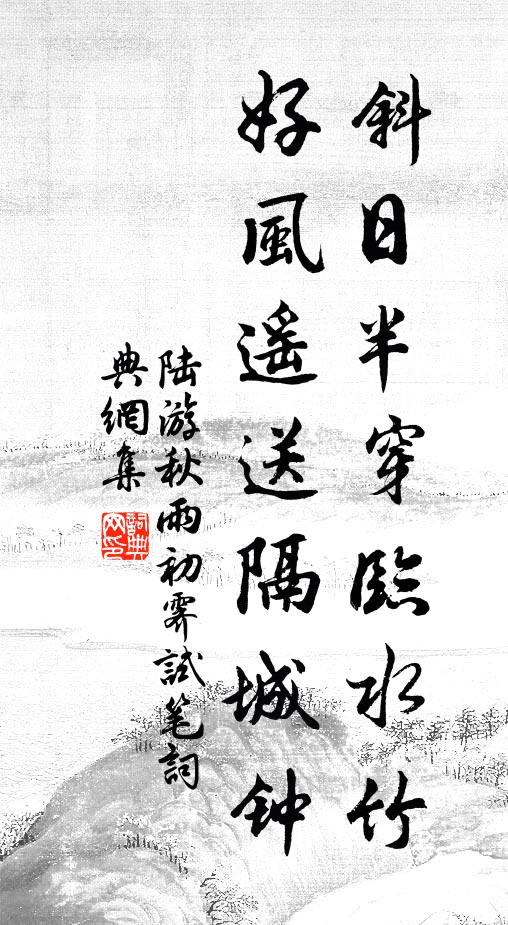 斜日半穿臨水竹
好風遥送隔城钟
陆游秋雨初霽試笔詞
典網集
詞典网印